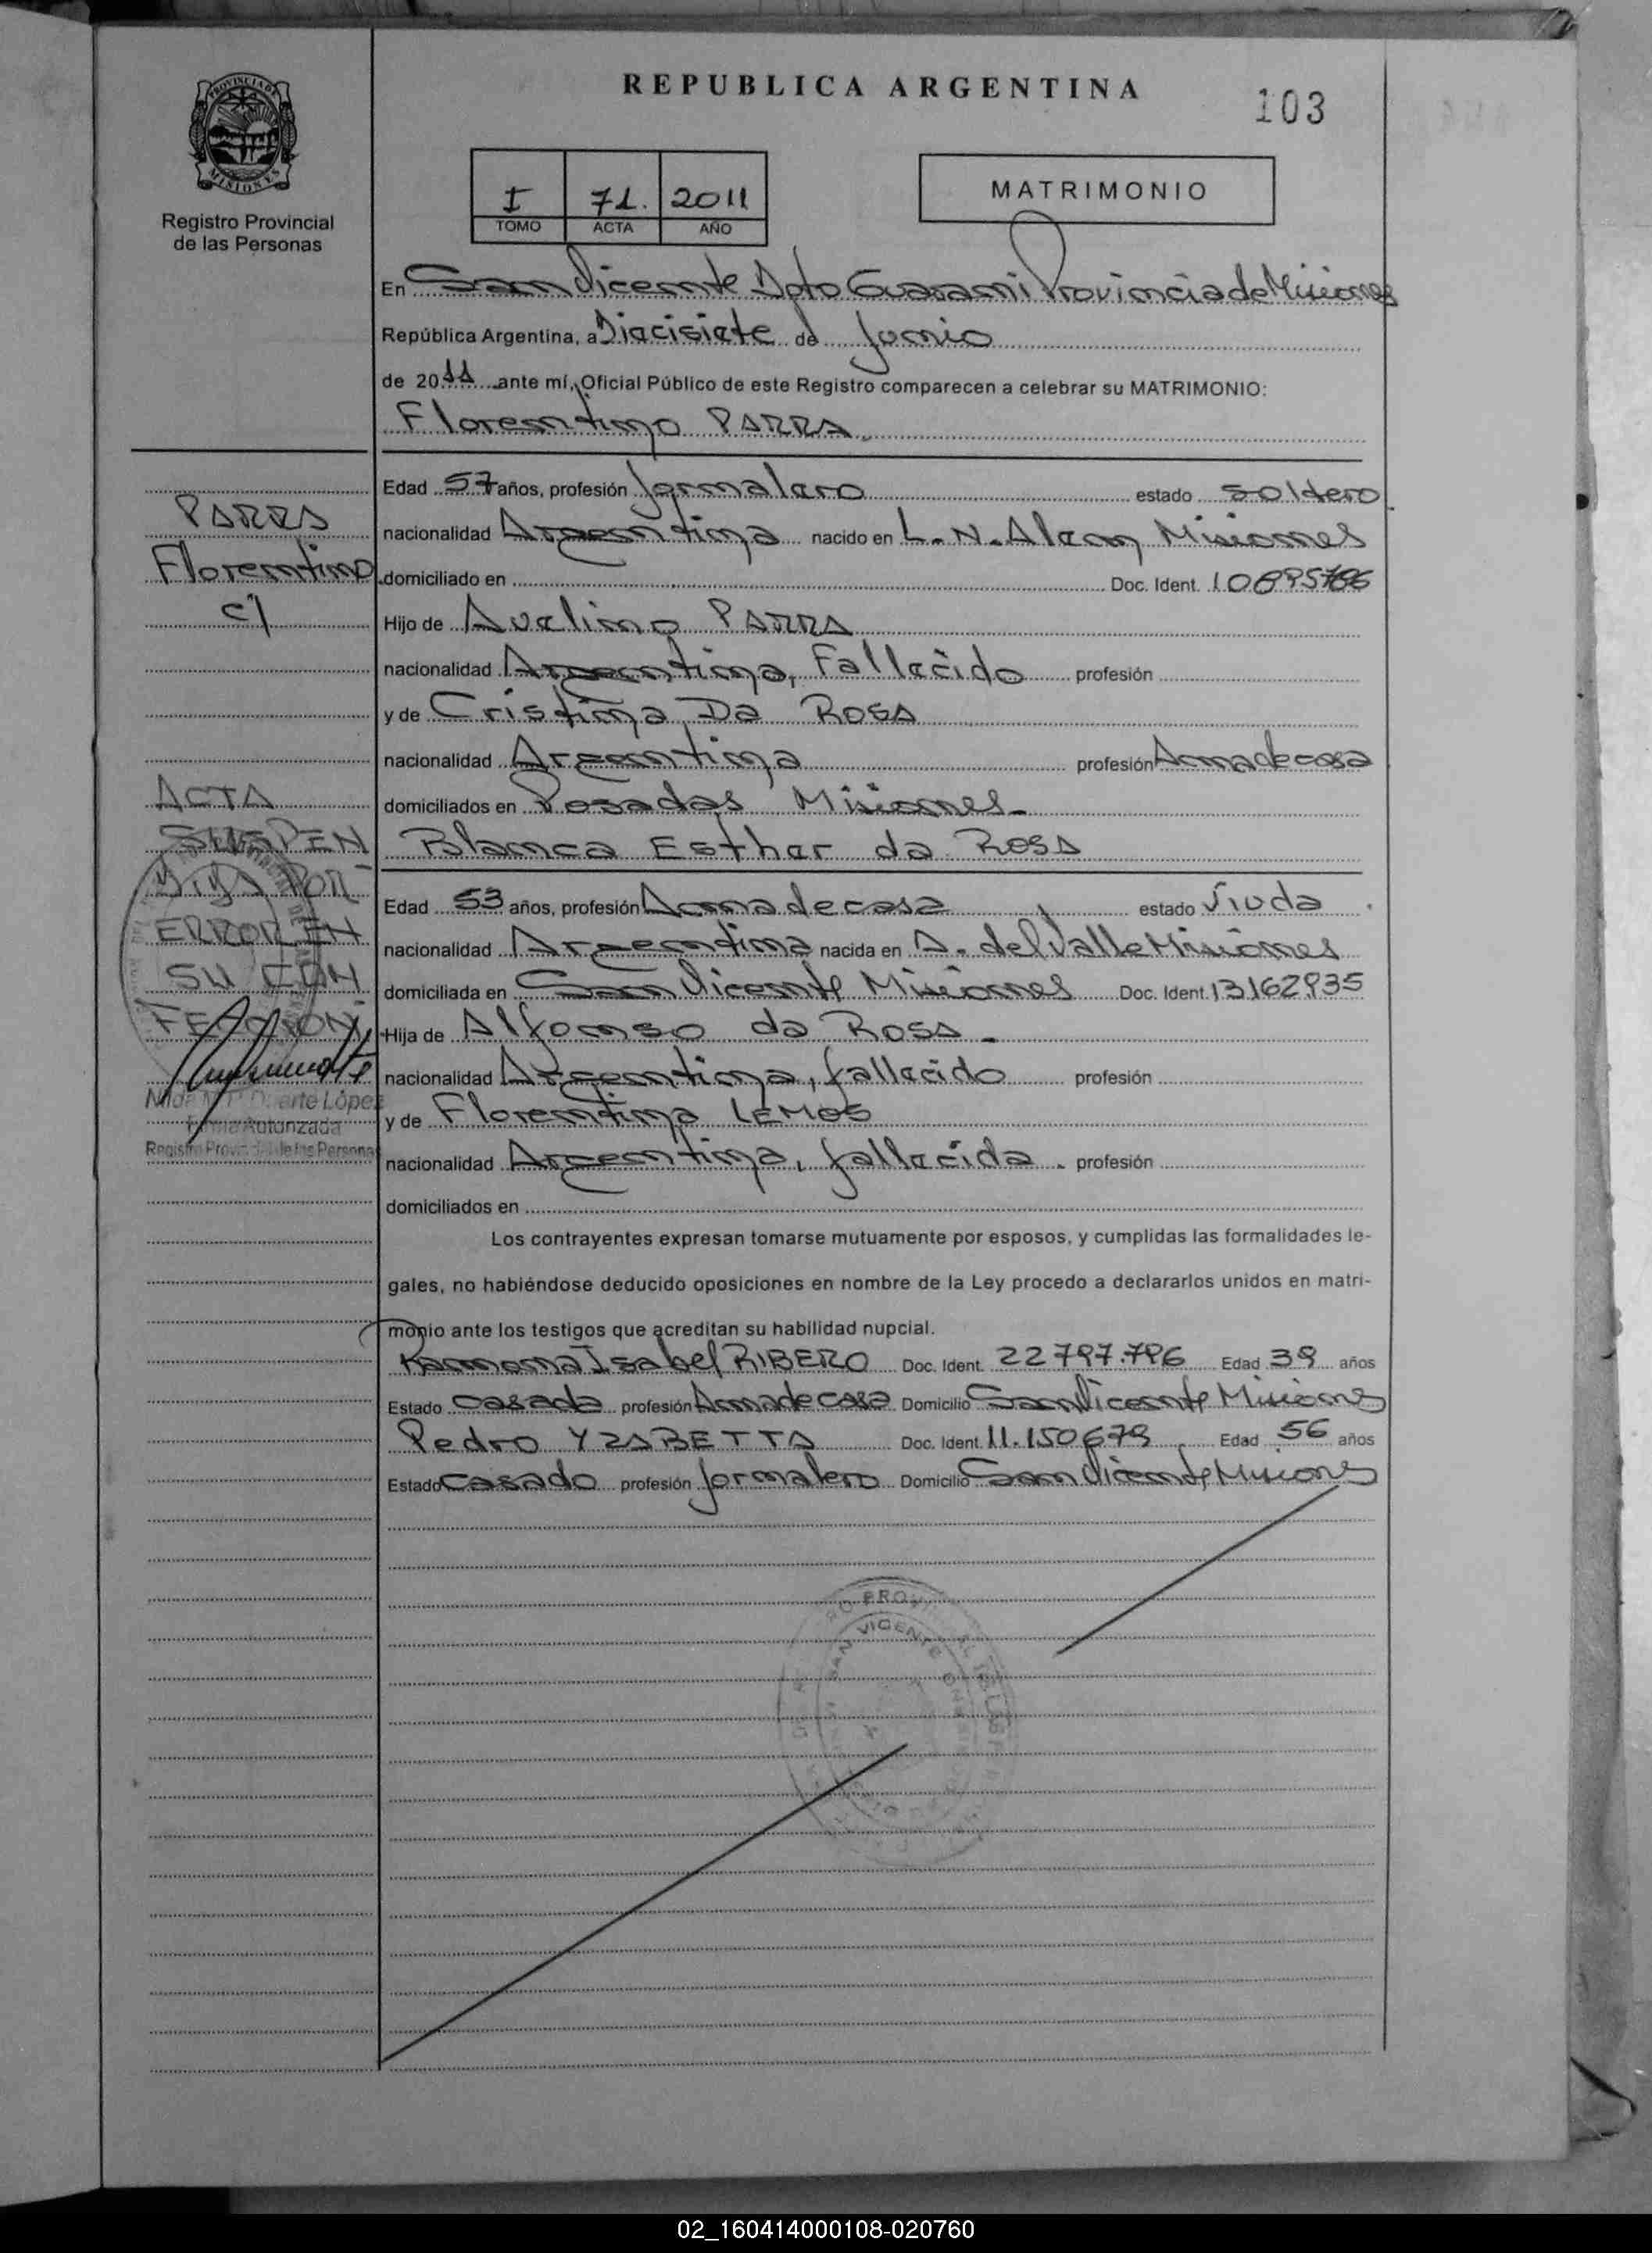 REPUBLICA ARGENTINA
103
PROVINCIA DE MISIONES
Registro Provincial
de las Personas
I 71. 2011
TOMO ACTA AÑO
MATRIMONIO
En San Vicente Dpto Guarani Provincia de Misiones
República Argentina, a Diecisiete de Junio
de 2011 ante mí, Oficial Público de este Registro comparecen a celebrar su MATRIMONIO:
Florentino PARRA.
PARRA
Florentino
c/
Edad 57 años, profesión Jornalero estado Soltero
nacionalidad Argentina nacido en L. N. Alem Misiones
domiciliado en Doc. Ident.
Hijo de Avelino PARRA
nacionalidad Argentina, Fallecido profesión
y de Cristina Da ROSA
nacionalidad Argentina profesión Ama de casa
domiciliados en Posadas Misiones
Blanca Esther da ROSA
ACTA
SUSPEN
DIDA POR
ERROR EN
SU CON
FECCION
Duarte López
Firma Autorizada
Registro Provincial de las Personas
Edad 53 años, profesión Ama de casa estado Viuda
nacionalidad Argentina nacida en A. del Valle Misiones
domiciliada en San Vicente Misiones Doc. Ident. 13162935
Hija de Alfonso da ROSA
nacionalidad Argentina, fallecido profesión
y de Florentina LEMOS
nacionalidad Argentina, fallecida profesión
domiciliados en
Los contrayentes expresan tomarse mutuamente por esposos, y cumplidas las formalidades le-
gales, no habiéndose deducido oposiciones en nombre de la Ley procedo a declararlos unidos en matri-
monio ante los testigos que acreditan su habilidad nupcial.
Ramona Isabel RIBERO Doc. Ident. 22797.796 Edad 39 años
Estado Casada profesión Ama de casa Domicilio San Vicente Misiones
Pedro YZABETTA Doc. Ident. 11.150679 Edad 56 años
Estado Casado profesión Jornalero Domicilio San Vicente Misiones
SAN VICENTE
02_160414000108-020760